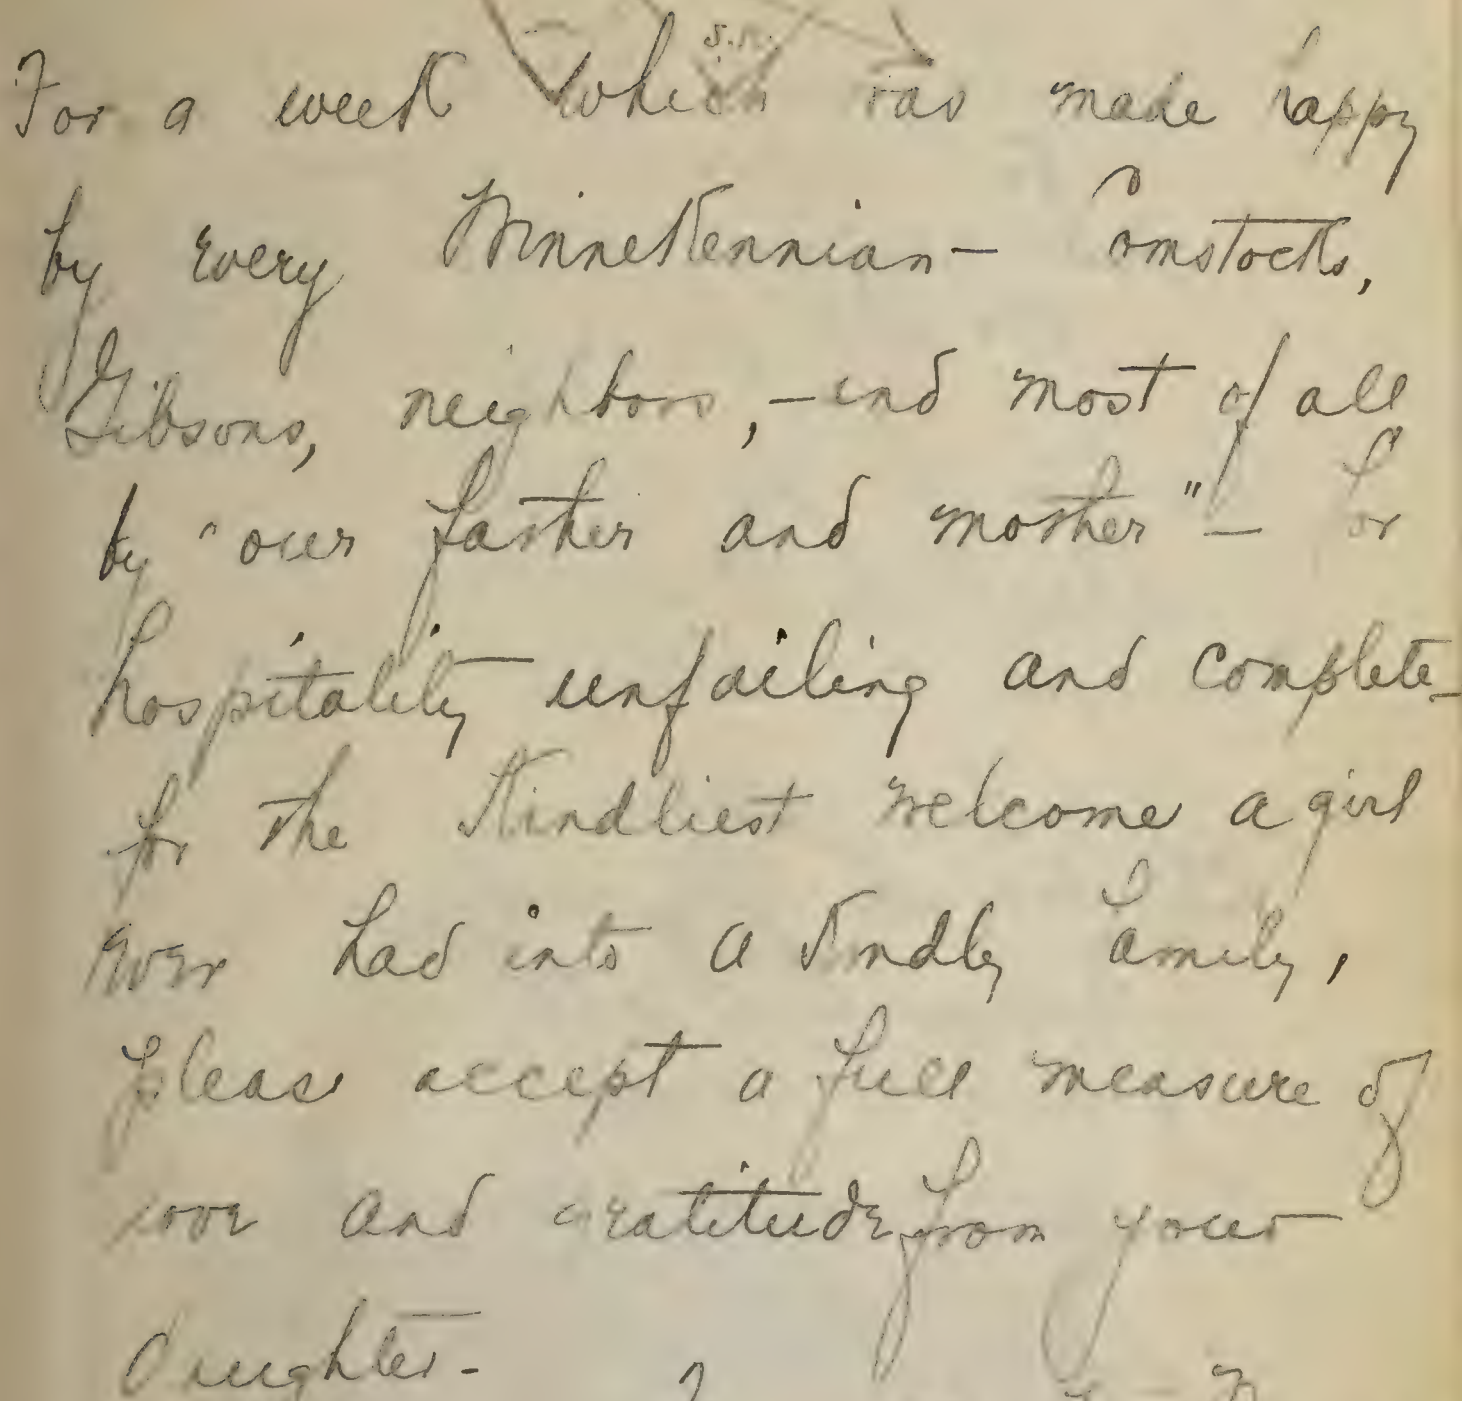 For a week which was made happy
by every Minnekennian — Comstocks,
Gibsons, neighbors, — and most of all
by "our father and mother" — for
hospitality unfailing and complete —
for the kindliest welcome a girl
ever had into a kindly family,
please accept a full measure of
love and gratitude from your
daughter —